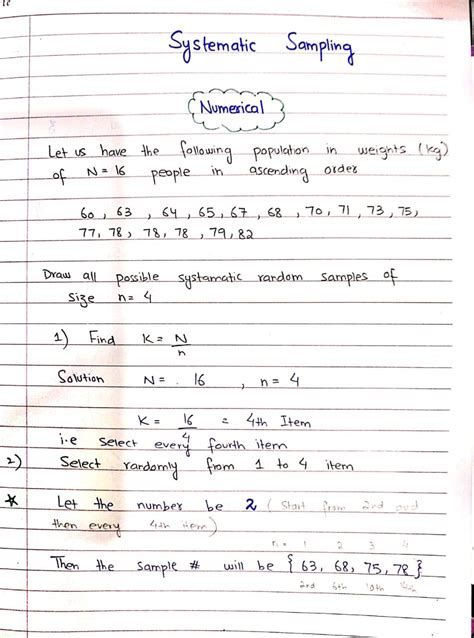 Systematic Sampling
Numerical
Let us have the following population in weights (kg)
of N = 16 people in ascending order
60, 63, 64, 65, 67, 68, 70, 71, 73, 75,
77, 78, 78, 78, 79, 82
Draw all possible systamatic random samples of
size n= 4
1) Find K = N/n
Solution N = 16, n = 4
K = 16/4 = 4th Item
i.e Select every fourth item
2) Select randomly from 1 to 4 item
* Let the number be 2 (Start from 2nd and
then every 4th item)
n = 1 2 3 4
Then the Sample # will be {63, 68, 75, 78}
2nd 6th 10th 14th